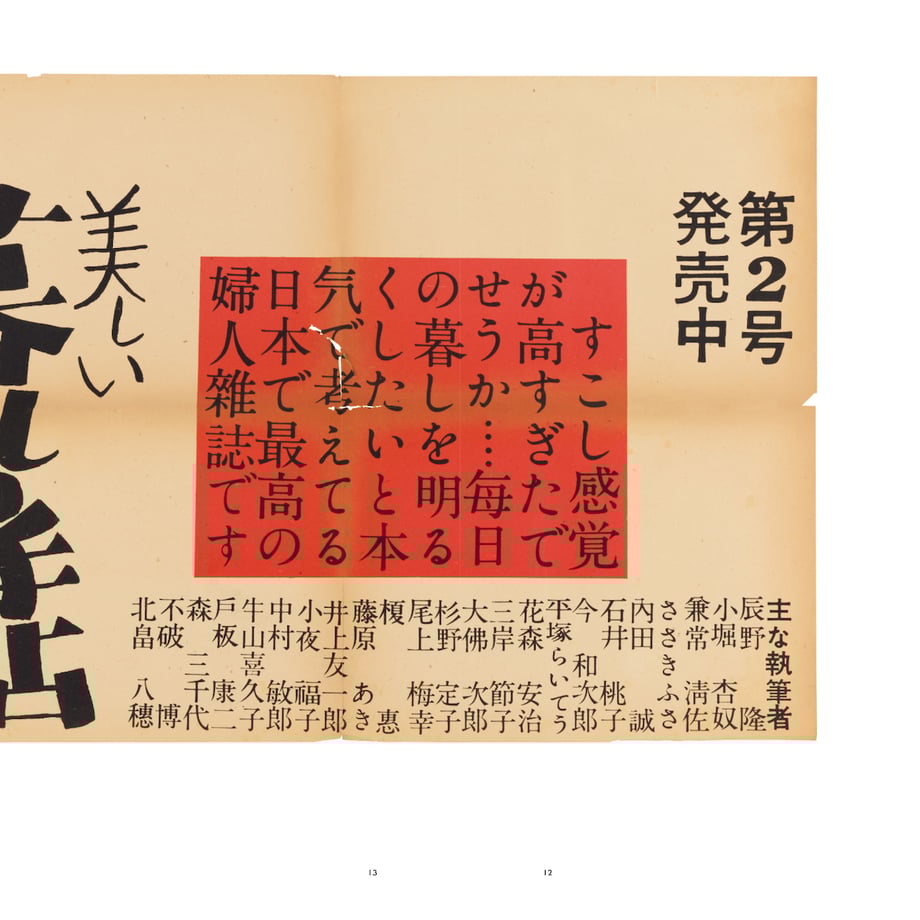 第2号
発売中
すこし感覚
が高すぎたで
せうか…毎日
の暮しを明る
くしたいと本
気で考えてる
日本で最高の
婦人雜誌です
主な執筆者
辰野 隆
小堀 杏奴
兼常 淸佐
ささきふさ
內田 誠
石井 桃子
今 和次郎
平塚らいてう
花森 安治
三岸 節子
大佛 次郎
杉野 定子
尾上 梅幸
榎 惠
藤原 あき
井上友一郎
小夜 福子
中村 敏郎
牛山喜久子
戶板 康二
森 三千代
不破 博
北畠 八穗
美しい
12
13